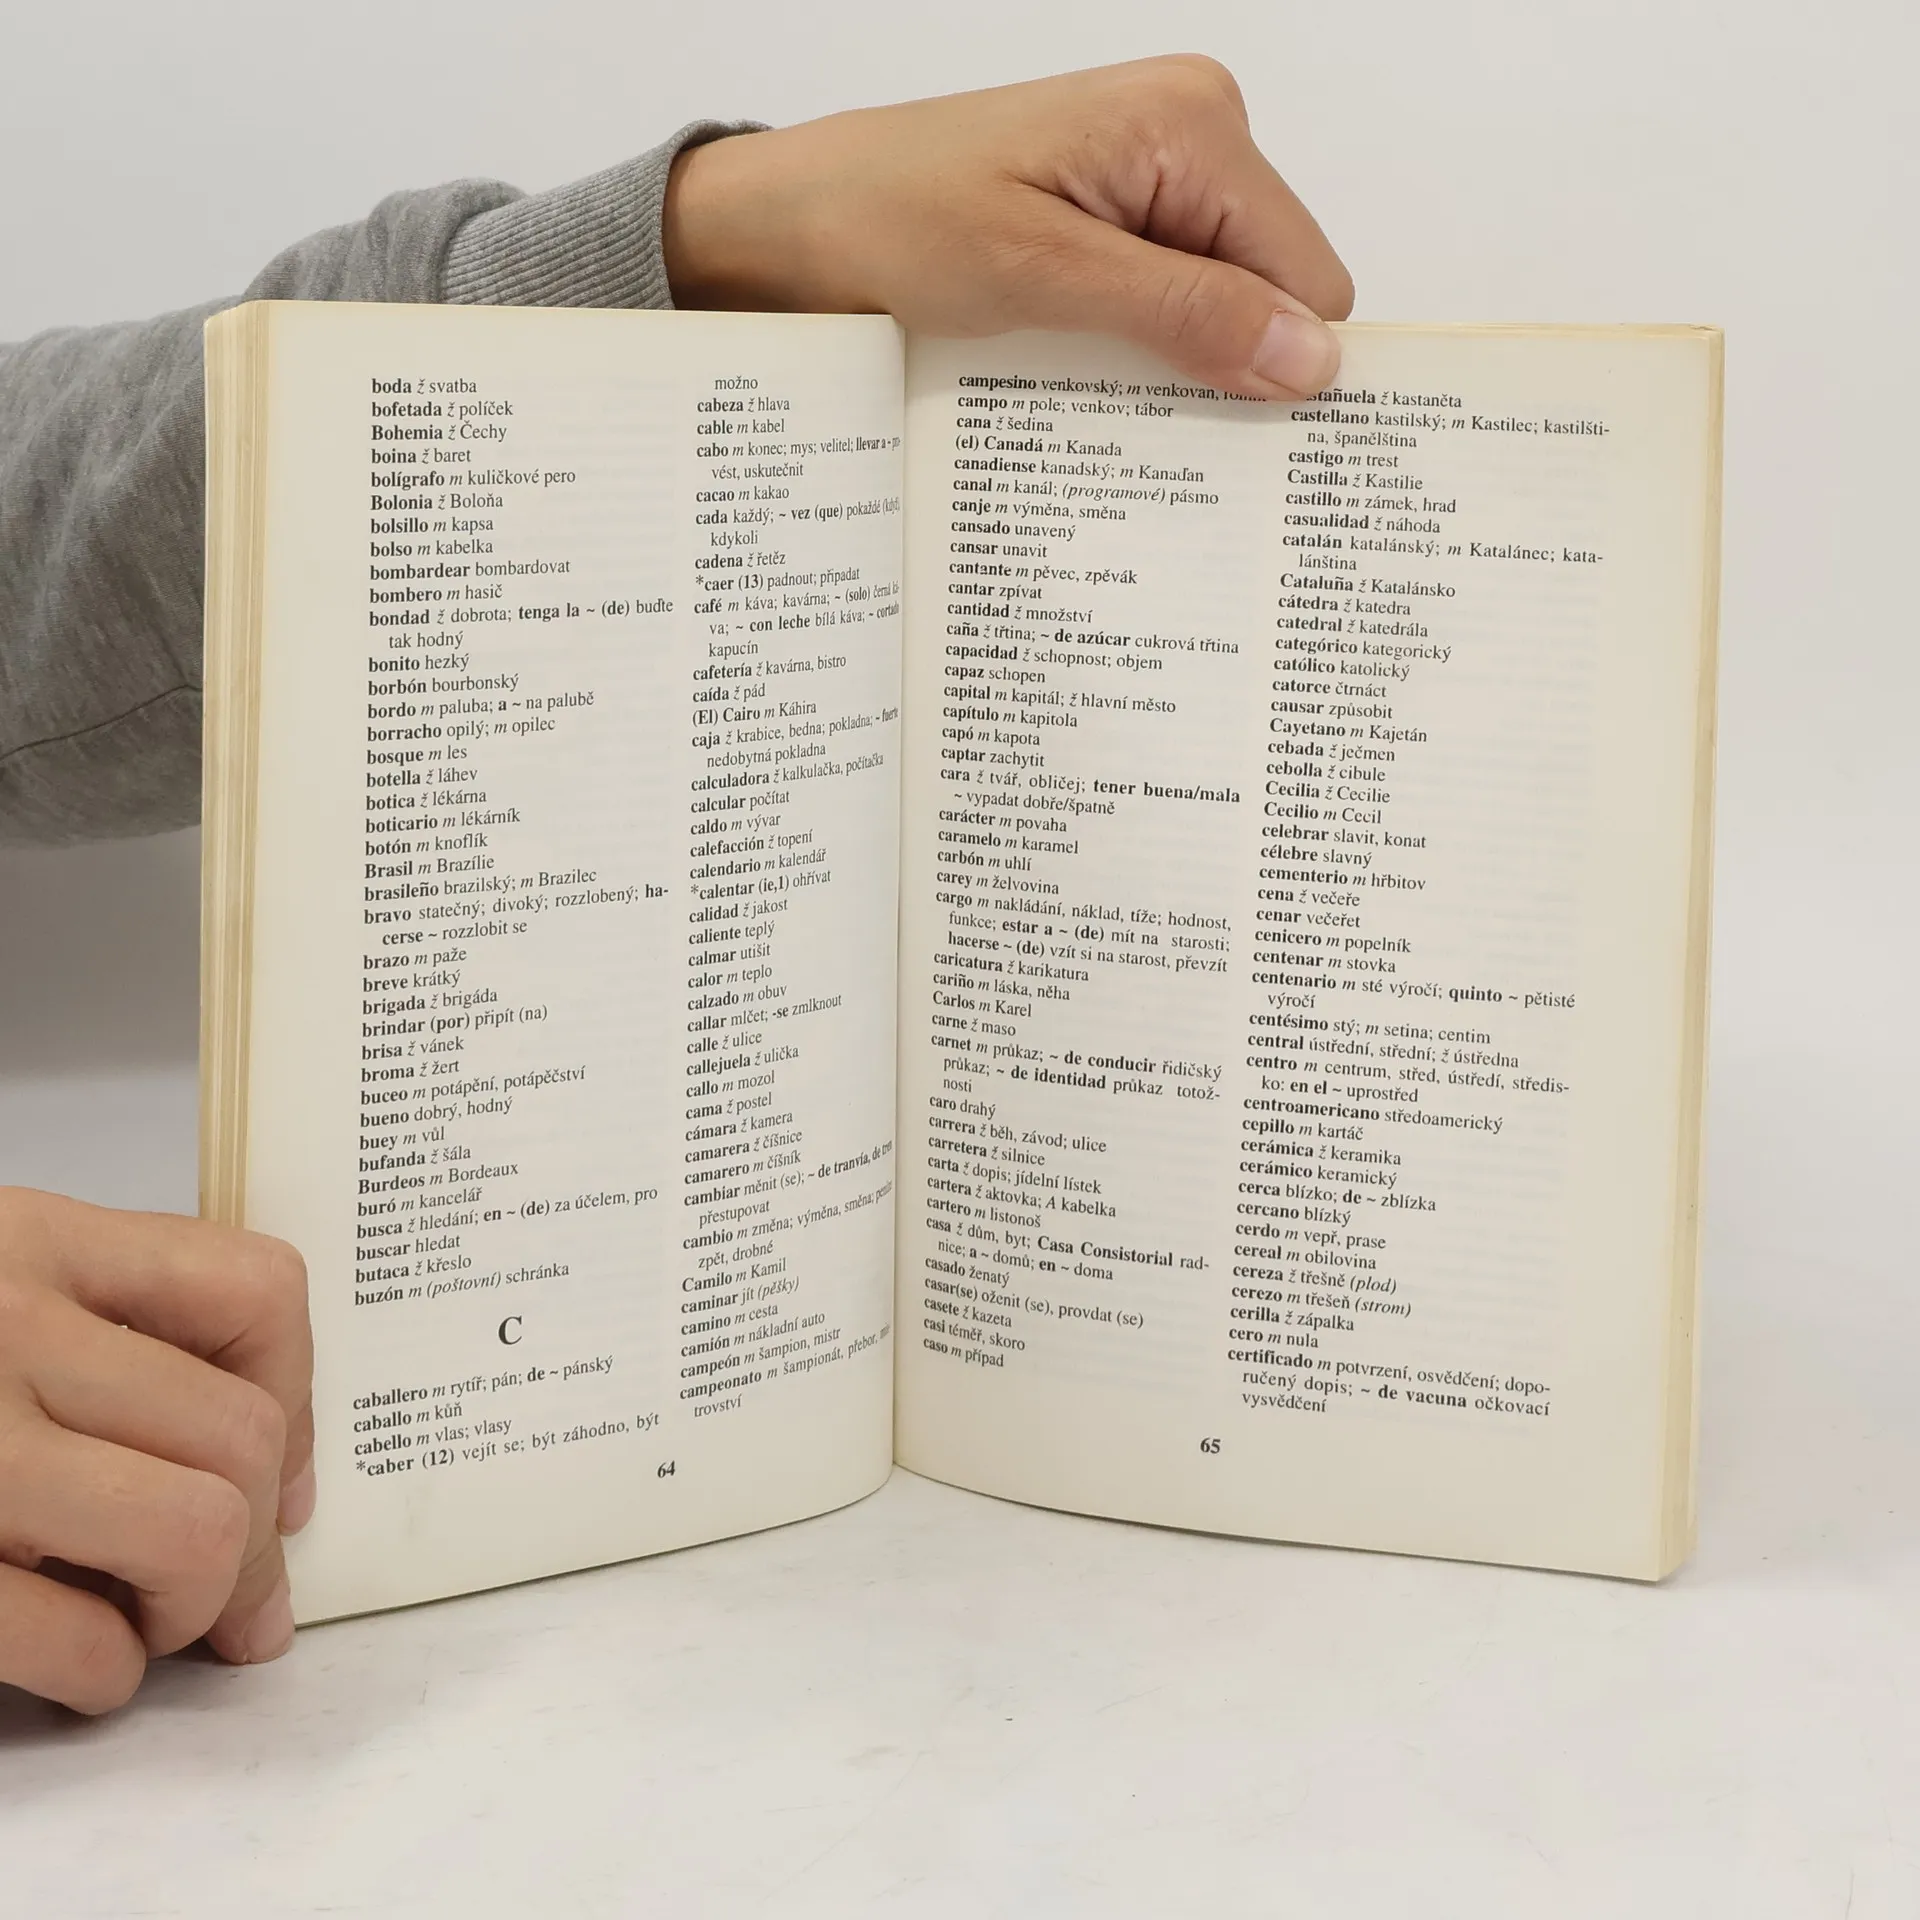 boda ž svatba
bofetada ž políček
Bohemia ž Čechy
boina ž baret
bolígrafo m kuličkové pero
Bolonia ž Boloňa
bolsillo m kapsa
bolso m kabelka
bombardear bombardovat
bombero m hasič
bondad ž dobrota; tenga la ~ (de) buďte
tak hodný
bonito hezký
borbón bourbonský
bordo m paluba; a ~ na palubě
borracho opilý; m opilec
bosque m les
botella ž láhev
botica ž lékárna
boticario m lékárník
botón m knoflík
Brasil m Brazílie
brasileño brazilský; m Brazilec
bravo statečný; divoký; rozzlobený; ha-
cerse ~ rozzlobit se
brazo m paže
breve krátký
brigada ž brigáda
brindar (por) připít (na)
brisa ž vánek
broma ž žert
buceo m potápění, potápěčství
bueno dobrý, hodný
buey m vůl
bufanda ž šála
Burdeos m Bordeaux
buró m kancelář
busca ž hledání; en ~ (de) za účelem, pro
buscar hledat
butaca ž křeslo
buzón m (poštovní) schránka
C
caballero m rytíř; pán; de ~ pánský
caballo m kůň
cabello m vlas; vlasy
*caber (12) vejít se; být záhodno, být
možno
cabeza ž hlava
cable m kabel
cabo m konec; mys; velitel; llevar a ~ pro-
vést, uskutečnit
cacao m kakao
cada každý; ~ vez (que) pokaždé (když),
kdykoli
cadena ž řetěz
*caer (13) padnout; připadat
café m káva; kavárna; ~ (solo) černá ká-
va; ~ con leche bílá káva; ~ cortado
kapucín
cafetería ž kavárna, bistro
caída ž pád
(El) Cairo m Káhira
caja ž krabice, bedna; pokladna; ~ fuerte
nedobytná pokladna
calculadora ž kalkulačka, počítačka
calcular počítat
caldo m vývar
calefacción ž topení
calendario m kalendář
*calentar (ie,1) ohřívat
calidad ž jakost
caliente teplý
calmar utišit
calor m teplo
calzado m obuv
callar mlčet; -se zmlknout
calle ž ulice
callejuela ž ulička
callo m mozol
cama ž postel
cámara ž kamera
camarera ž číšnice
camarero m číšník
cambiar měnit (se); ~ de tranvía, de tren
přestupovat
cambio m změna; výměna, směna; peníze
zpět, drobné
Camilo m Kamil
caminar jít (pěšky)
camino m cesta
camión m nákladní auto
campeón m šampion, mistr
campeonato m šampionát, přebor, mis-
trovství
64
campesino venkovský; m venkovan,
campo m pole; venkov; tábor
cana ž šedina
(el) Canadá m Kanada
canadiense kanadský; m Kanaďan
canal m kanál; (programové) pásmo
canje m výměna, směna
cansado unavený
cansar unavit
cantante m pěvec, zpěvák
cantar zpívat
cantidad ž množství
caña ž třtina; ~ de azúcar cukrová třtina
capacidad ž schopnost; objem
capaz schopen
capital m kapitál; ž hlavní město
capítulo m kapitola
capó m kapota
captar zachytit
cara ž tvář, obličej; tener buena/mala
~ vypadat dobře/špatně
carácter m povaha
caramelo m karamel
carbón m uhlí
carey m želvovina
cargo m nakládání, náklad, tíže; hodnost,
funkce; estar a ~ (de) mít na starosti;
hacerse ~ (de) vzít si na starost, převzít
caricatura ž karikatura
cariño m láska, něha
Carlos m Karel
carne ž maso
carnet m průkaz; ~ de conducir řidičský
průkaz; ~ de identidad průkaz totož-
nosti
caro drahý
carrera ž běh, závod; ulice
carretera ž silnice
carta ž dopis; jídelní lístek
cartera ž aktovka; A kabelka
cartero m listonoš
casa ž dům, byt; Casa Consistorial rad-
nice; a ~ domů; en ~ doma
casado ženatý
casar(se) oženit (se), provdat (se)
casete ž kazeta
casi téměř, skoro
caso m případ
ž kastaněta
castellano kastilský; m Kastilec; kastilšti-
na, španělština
castigo m trest
Castilla ž Kastilie
castillo m zámek, hrad
casualidad ž náhoda
catalán katalánský; m Katalánec; kata-
lánština
Cataluña ž Katalánsko
cátedra ž katedra
catedral ž katedrála
categórico kategorický
católico katolický
catorce čtrnáct
causar způsobit
Cayetano m Kajetán
cebada ž ječmen
cebolla ž cibule
Cecilia ž Cecilie
Cecilio m Cecil
celebrar slavit, konat
célebre slavný
cementerio m hřbitov
cena ž večeře
cenar večeřet
cenicero m popelník
centenar m stovka
centenario m sté výročí; quinto ~ pětisté
výročí
centésimo stý; m setina; centim
central ústřední, střední; ž ústředna
centro m centrum, střed, ústředí, středis-
ko: en el ~ uprostřed
centroamericano středoamerický
cepillo m kartáč
cerámica ž keramika
cerámico keramický
cerca blízko; de ~ zblízka
cercano blízký
cerdo m vepř, prase
cereal m obilovina
cereza ž třešně (plod)
cerezo m třešeň (strom)
cerilla ž zápalka
cero m nula
certificado m potvrzení, osvědčení; dopo-
ručený dopis; ~ de vacuna očkovací
vysvědčení
65